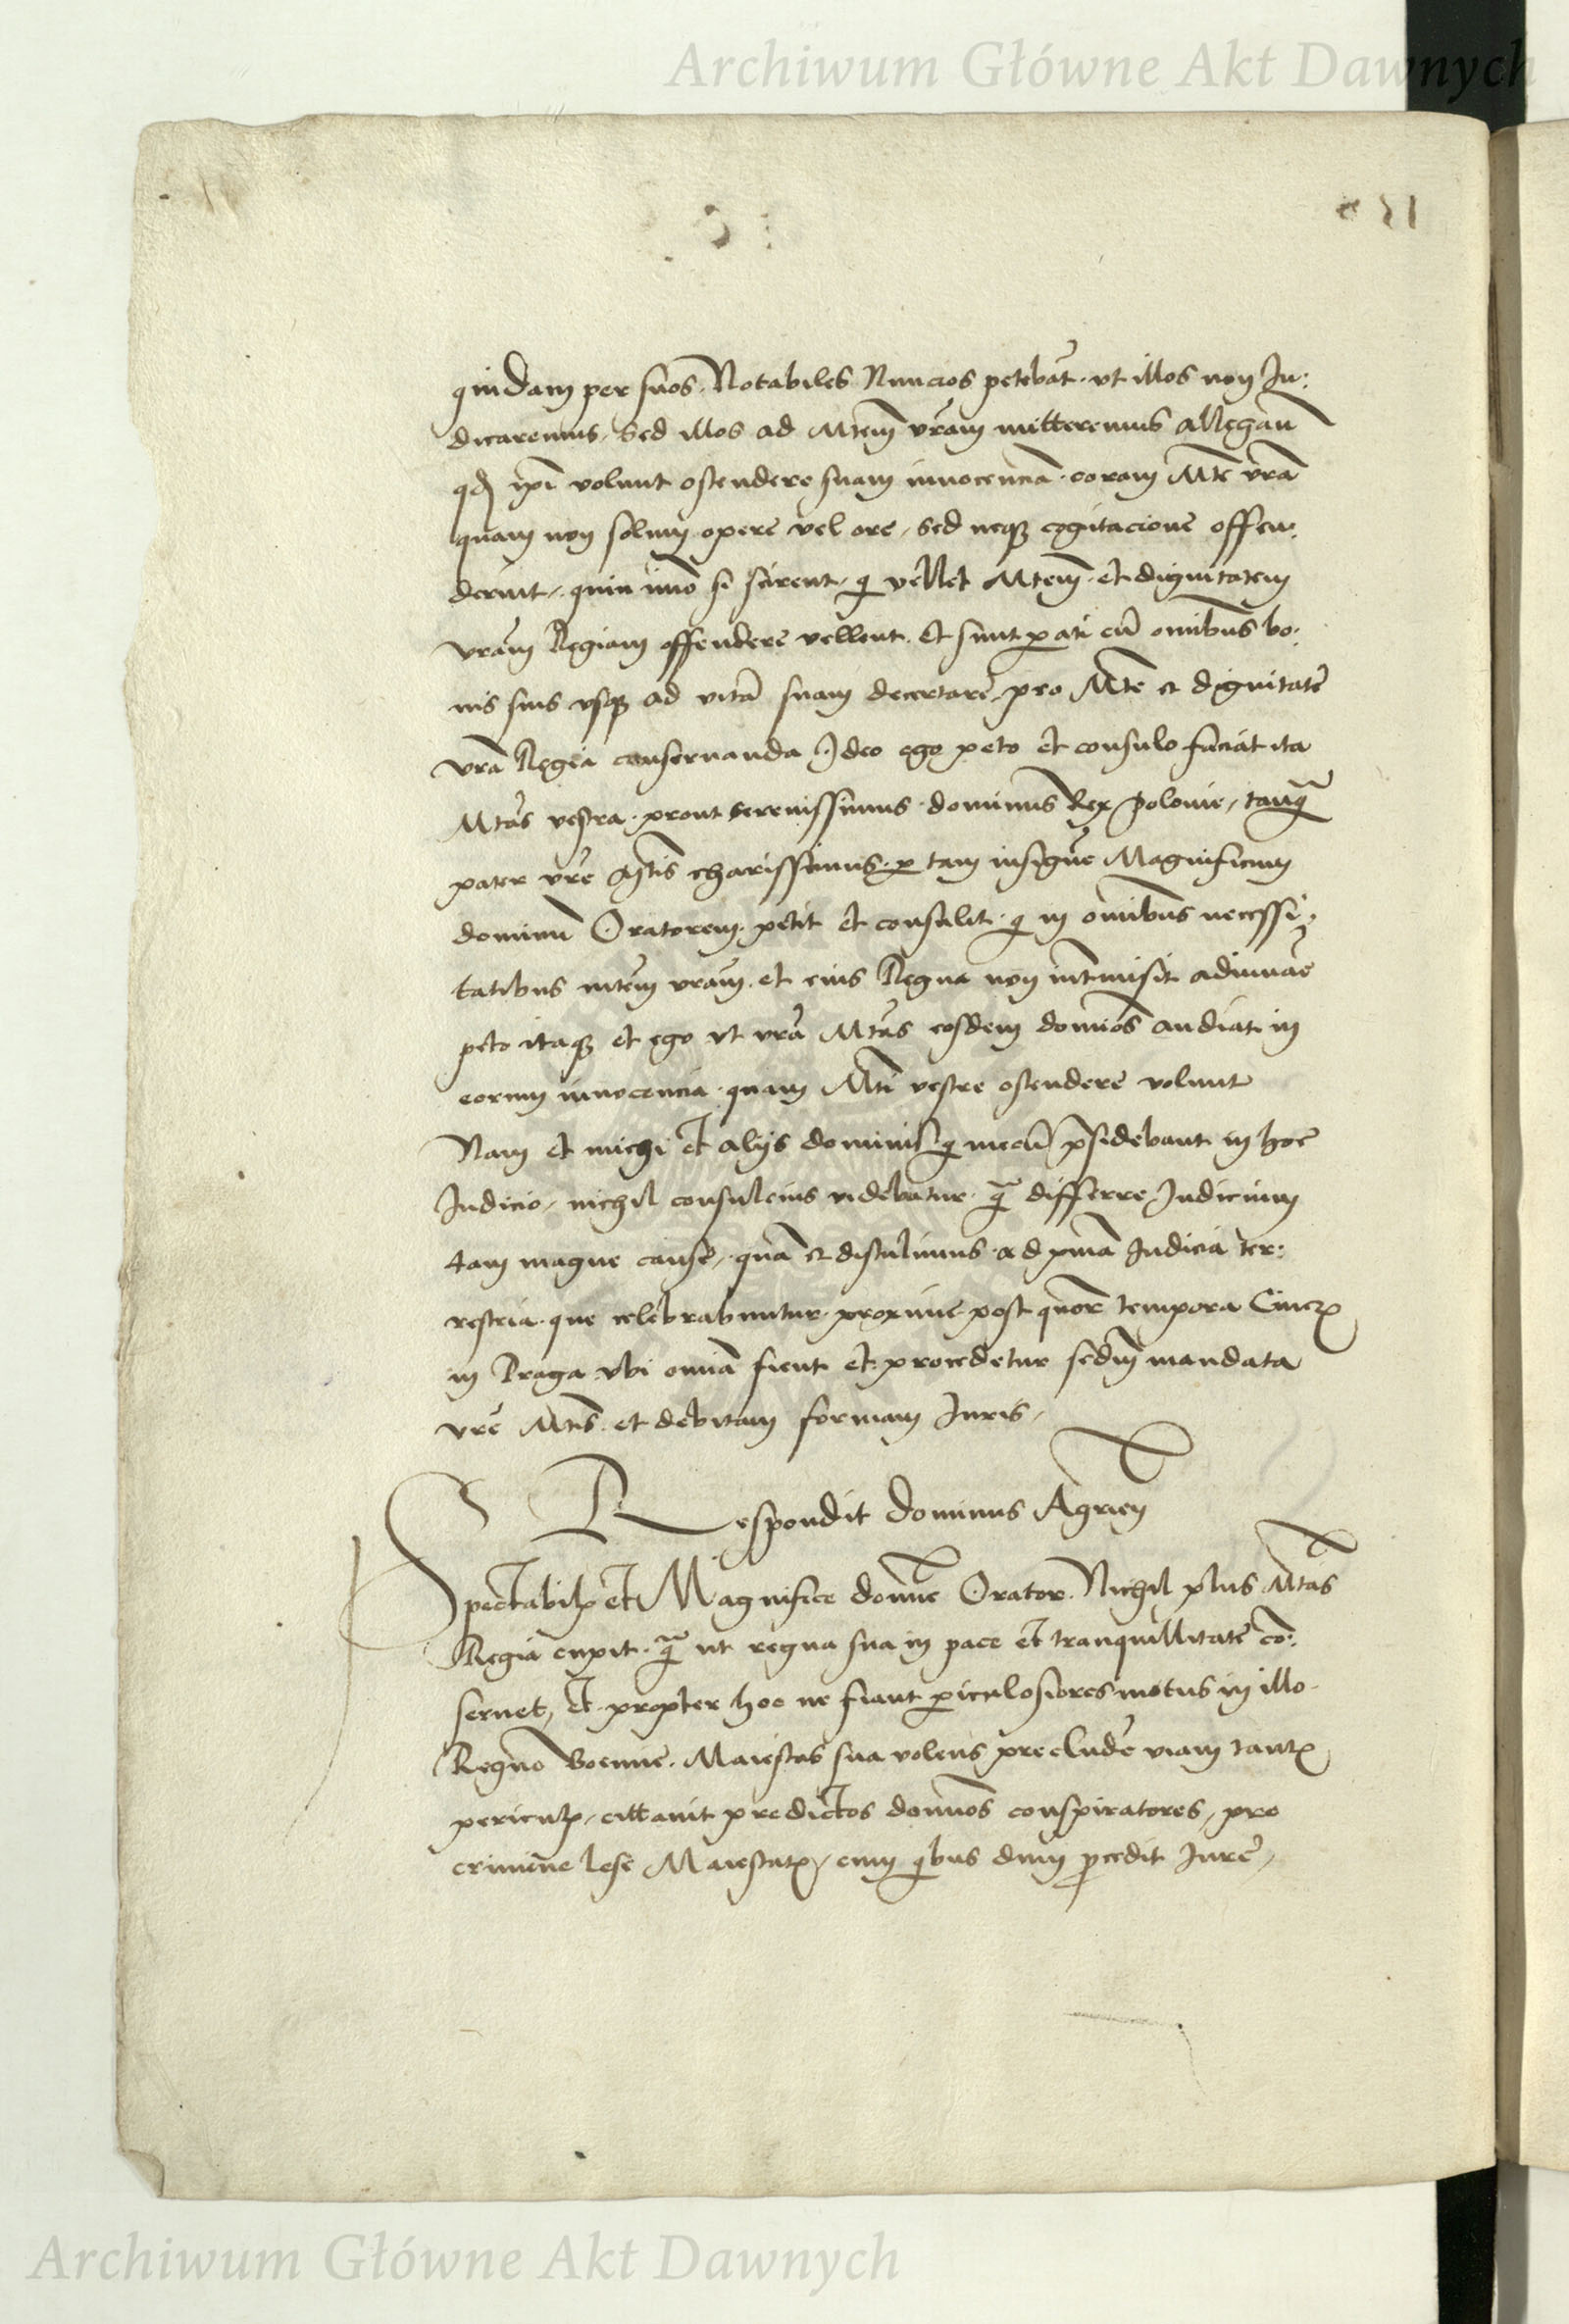 Archiwum Główne Akt Dawnych
quidam per suos Notabiles Nuncios petebāt. ut illos non Iu:
dicaremus, Sed illos ad Mtem vram mitteremus allegan̄
qd ipi volunt ostendere suam innocenciā coram Mte vrā
quam non solum opere vel ore, sed neqz cogitacione offen:
derint, quin imo si scirent, q vellet Mtem et dignitatem
vram Regiam offendere vellent. et sunt pati cū omibus bo:
nis suis vsqz ad vitā suam decertare pro Mte et dignitate
vrā Regia conseruanda Ideo ego peto et consulo faciat ita
Mtas vestra prout serenissimus dominus Rex Polonie, tanqā
pater vre Mtis charissimus p tam insignē Magnificum
dominū Oratorem petit et consulit q in omibus necessi:
tatibus mtem vram et eius Regna non intmisit adiuuare
peto itaqz et ego ut vrā Mtas eosdem domios audiat in
eorum innocencia quam Mti vestre ostendere volunt
Nam et michi et alijs dominis q mecū psidebant in hoc
Iudicio, nichil consulcius videbatur qā differre Iudicium
tam magne cause, quā et distulimus ad pma Iudicia ter:
restria que celebrabuntur proxime post quor tempora Ciner
in Praga vbi omia fient et procedetur sedm mandata
vre Mtis et debitam formam Iuris,
Respondit dominus Agrien
Spectabilis et Magnifice domne Orator Nichil plus Mtas
Regia cupit qā ut regna sua in pace et tranquillitate cō:
seruet, et propter hoc ne fiant piculosiores motus in illo
Regno Boemie. Maiestas sua volens precludere viam tantis
periculis, cittauit predictos domnos conspiratores, pro
crimine lese Maiestatis, cum qbus dum pcedit Iure,
Archiwum Główne Akt Dawnych